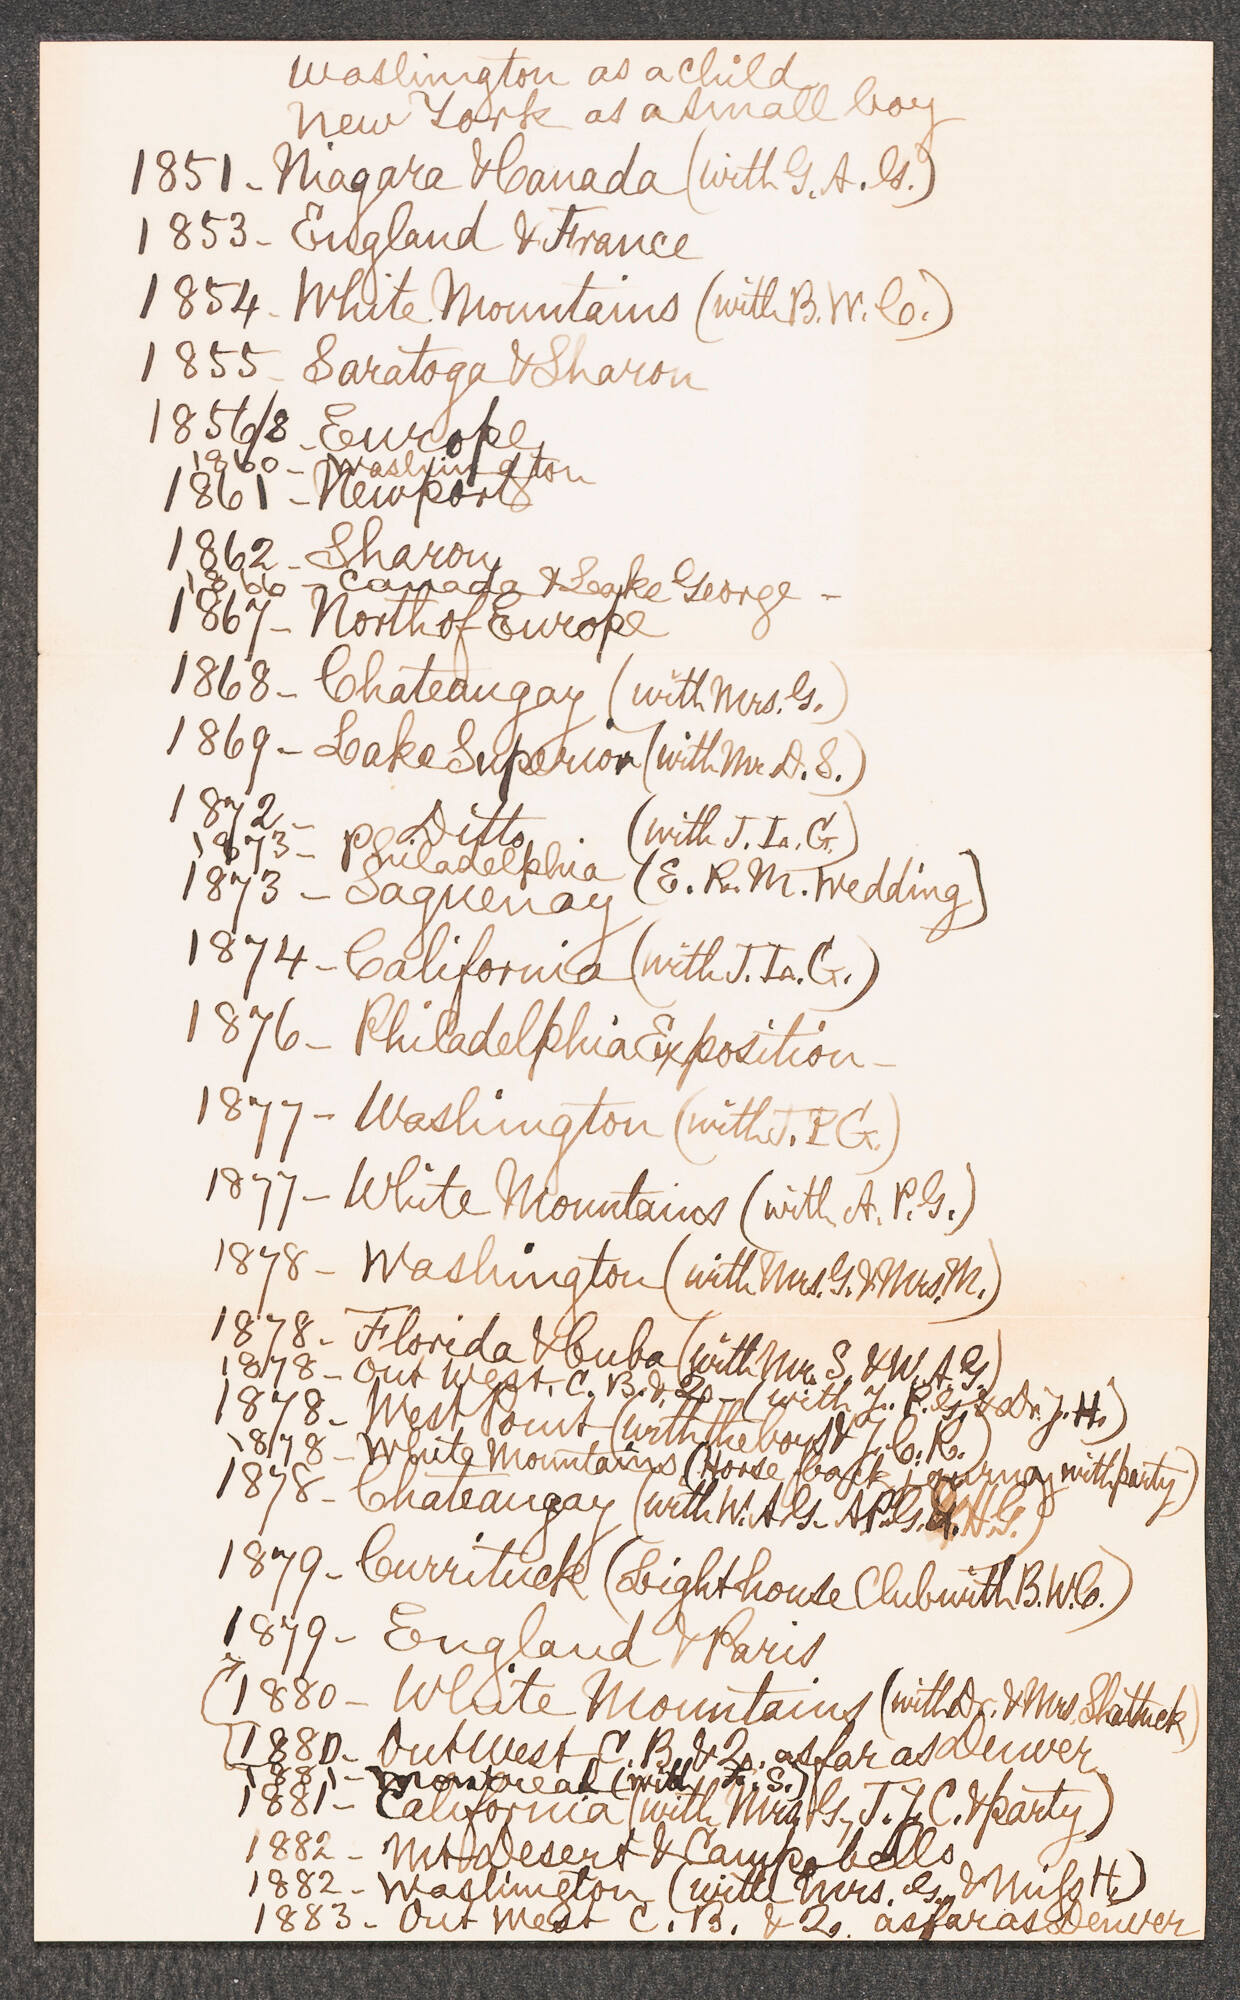 Washington as a child
New York as a small boy
1851 - Niagara & Canada (with G. A. G.)
1853 - England & France
1854 - White Mountains (with B. W. C.)
1855 - Saratoga & Sharon
1856/8 - Europe
1860 - Washington
1861 - Newport
1862 - Sharon
1866 - Canada & Lake George -
1867 - North of Europe
1868 - Chateaugay (with Mrs. G.)
1869 - Lake Superior (with Mr D. S.)
1872 - Ditto (with J. L. G.)
1873 - Philadelphia (E. R. M. Wedding)
1873 - Saguenay
1874 - California (with J. L. G.)
1876 - Philadelphia Exposition -
1877 - Washington (with J. P G.)
1877 - White Mountains (with A. P. G.)
1878 - Washington (with Mrs. G. & Mrs. M.)
1878 - Florida & Cuba (with Mr. S. & W. A. G.)
1878 - Out West. C. B. & Q. - (with J. P. G. & Dr. J. H.)
1878 - West Point (with the boys & J. C. R.)
1878 - White Mountains (Horse back journey with party)
1878 - Chateaugay (with W. A G. - A P. G. & H. G.)
1879 - Currituck (Light house Club with B. W. C.)
1879 - England & Paris
1880 - White Mountains (with Dr. & Mrs. Shattuck)
1880 - Out West C. B. & Q. as far as Denver
1881 - Montreal (with F. S.)
1881 - California (with Mrs. G., T. J. C. & party)
1882 - Mt Desert & Campobello
1882 - Washington (with Mrs. G. & Miss H.)
1883 - Out West C. B. & Q. as far as Denver